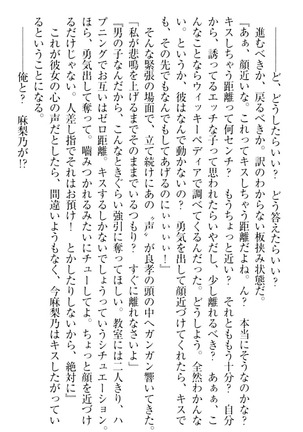 ――ど、どうしたらいい？　どう答えたらいい？
進むべきか、戻るべきか。訳のわからない板挟み状態だ。
『あぁ、顔近いな。これってキスしちゃう距離だよね。ん？　本当にそうなのかな？
キスしちゃう距離って何センチ？　もうちょっと近い？　それとももう十分？　自分
から、誘ってるエッチな子って思われたらいやだし、少し離れるべき？　えぇっ、こ
んなことならウィッキーペディアで調べてくるんだった。どうしよう。全然わかんな
い。というか、彼はなんで動かないの!?　勇気を出して顔近づけてくれたら、キスで
もなんでもしてあげるのにぃぃ～！』
そんな緊張の場面で、立て続けにあの〝声〟が良孝の頭の中へガンガン響いてきた。
「私が悲鳴を上げるまでそのままでいるつもり？　すぐに離れなさいよ」
『男の子なんだから、こんなときぐらい強引に奪ってほしい。教室には二人きり、ハ
プニングでお互いはゼロ距離。キスするしかないでしょうっていうシチュエーション。
ほら、勇気出して奪って。噛みつかれるみたいにチューしてよ。ちょっと顔を近づけ
るだけじゃない。人差し指でそれはお預け！　とかしたりしないから、絶対に』
これが彼女の心の声だとしたら、間違いようもなく、今麻梨乃はキスしたがってい
るということになる。
――俺と？　麻梨乃が!?